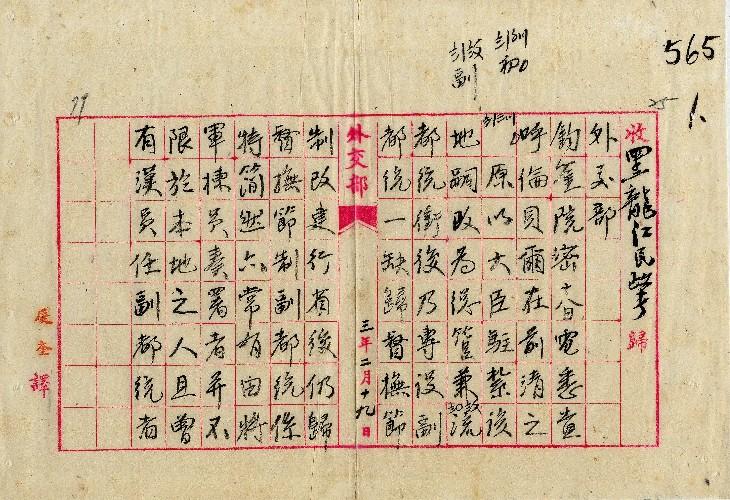 565
1.
收黑龍江民
歸
外交部
鈞鑒院密十八日電悉查
呼倫貝爾在前清之
原以大臣駐紮後
地嗣改為總管兼流
都統銜後乃專設副
都統一缺歸督撫節
外交部
三年二月十九日
制改建行省後仍歸
督撫節制副都統係
特簡然亦常有由將
軍揀員奏署者并不
限於本地之人且曾
有漢員任副都統者
奎譯